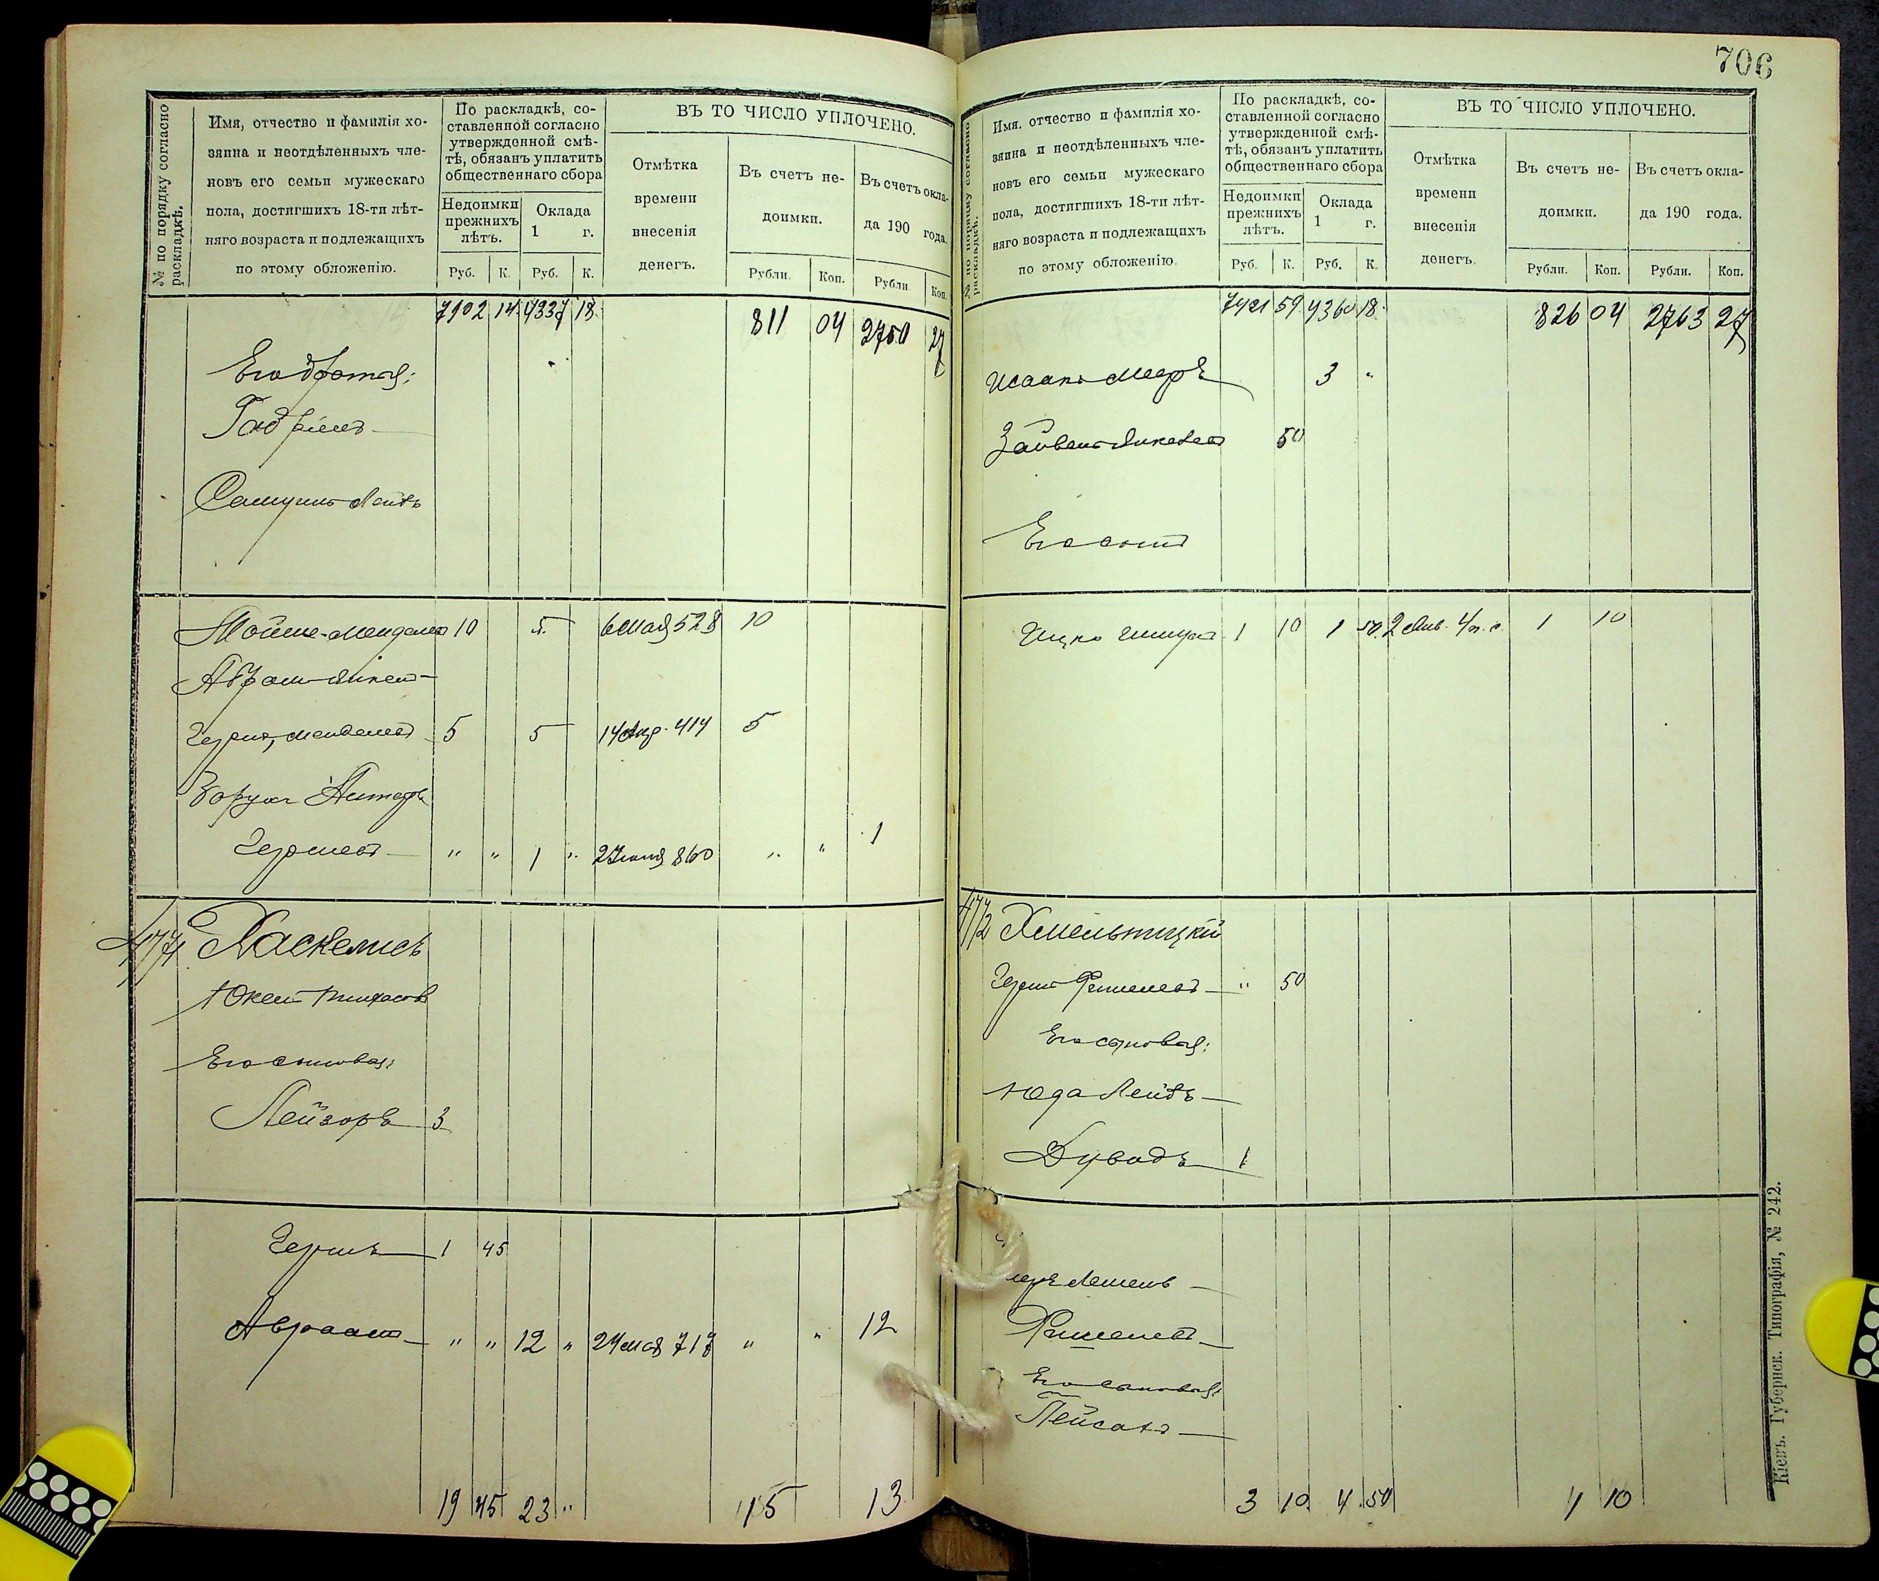 706
№ по порядку согласно раскладкѣ.
Имя, отчество и фамилія хо-
зяина и неотдѣленныхъ чле-
новъ его семьи мужескаго
пола, достигшихъ 18-ти лѣт-
няго возраста и подлежащихъ
по этому обложенію.
По раскладкѣ, со-
ставленной согласно
утвержденной смѣ-
тѣ, обязанъ уплатить
общественнаго сбора
Недоимки
прежнихъ
лѣтъ.
Оклада
1 г.
Руб. К. Руб. К.
ВЪ ТО ЧИСЛО УПЛОЧЕНО.
Отмѣтка
времени
внесенія
денегъ.
Въ счетъ не-
доимки.
Въ счетъ окла-
да 190 года.
Рубли. Коп. Рубли Коп.
7902 14 4337 18 811 04 2750 27
Его братья:
Габріель
Самуилъ Лейбъ
10 5 6 мая 528 10
5 5 14 Апр. 414 5
Борухъ
Гершель " " 1 " 860 " " 1
471 Хаскелисъ
Его сыновья:
Лейзоръ 3
Гершъ 1 45
Авраамъ " " 12 " 24 мая 717 " " 12
19 45 23 " 15 13
№ по порядку согласно раскладкѣ.
Имя, отчество и фамилія хо-
зяина и неотдѣленныхъ чле-
новъ его семьи мужескаго
пола, достигшихъ 18-ти лѣт-
няго возраста и подлежащихъ
по этому обложенію.
По раскладкѣ, со-
ставленной согласно
утвержденной смѣ-
тѣ, обязанъ уплатить
общественнаго сбора
Недоимки
прежнихъ
лѣтъ.
Оклада
1 г.
Руб. К. Руб. К.
ВЪ ТО ЧИСЛО УПЛОЧЕНО.
Отмѣтка
времени
внесенія
денегъ.
Въ счетъ не-
доимки.
Въ счетъ окла-
да 190 года.
Рубли. Коп. Рубли. Коп.
7421 59 4360 18 826 04 2763 27
Исаакъ Мееръ 3 "
50
Его сынъ
Ицко 1 10 1 50 2 Янв. 1 10
472 Хмельницкій
Гершъ Фишелевъ " 50
Его сыновья:
Юда Лейбъ
Дувидъ 1
Фишель
Его сыновья:
Пейсахъ
3 10 4 50 1 10
Кіевъ. Губернск. Типографія, № 242.